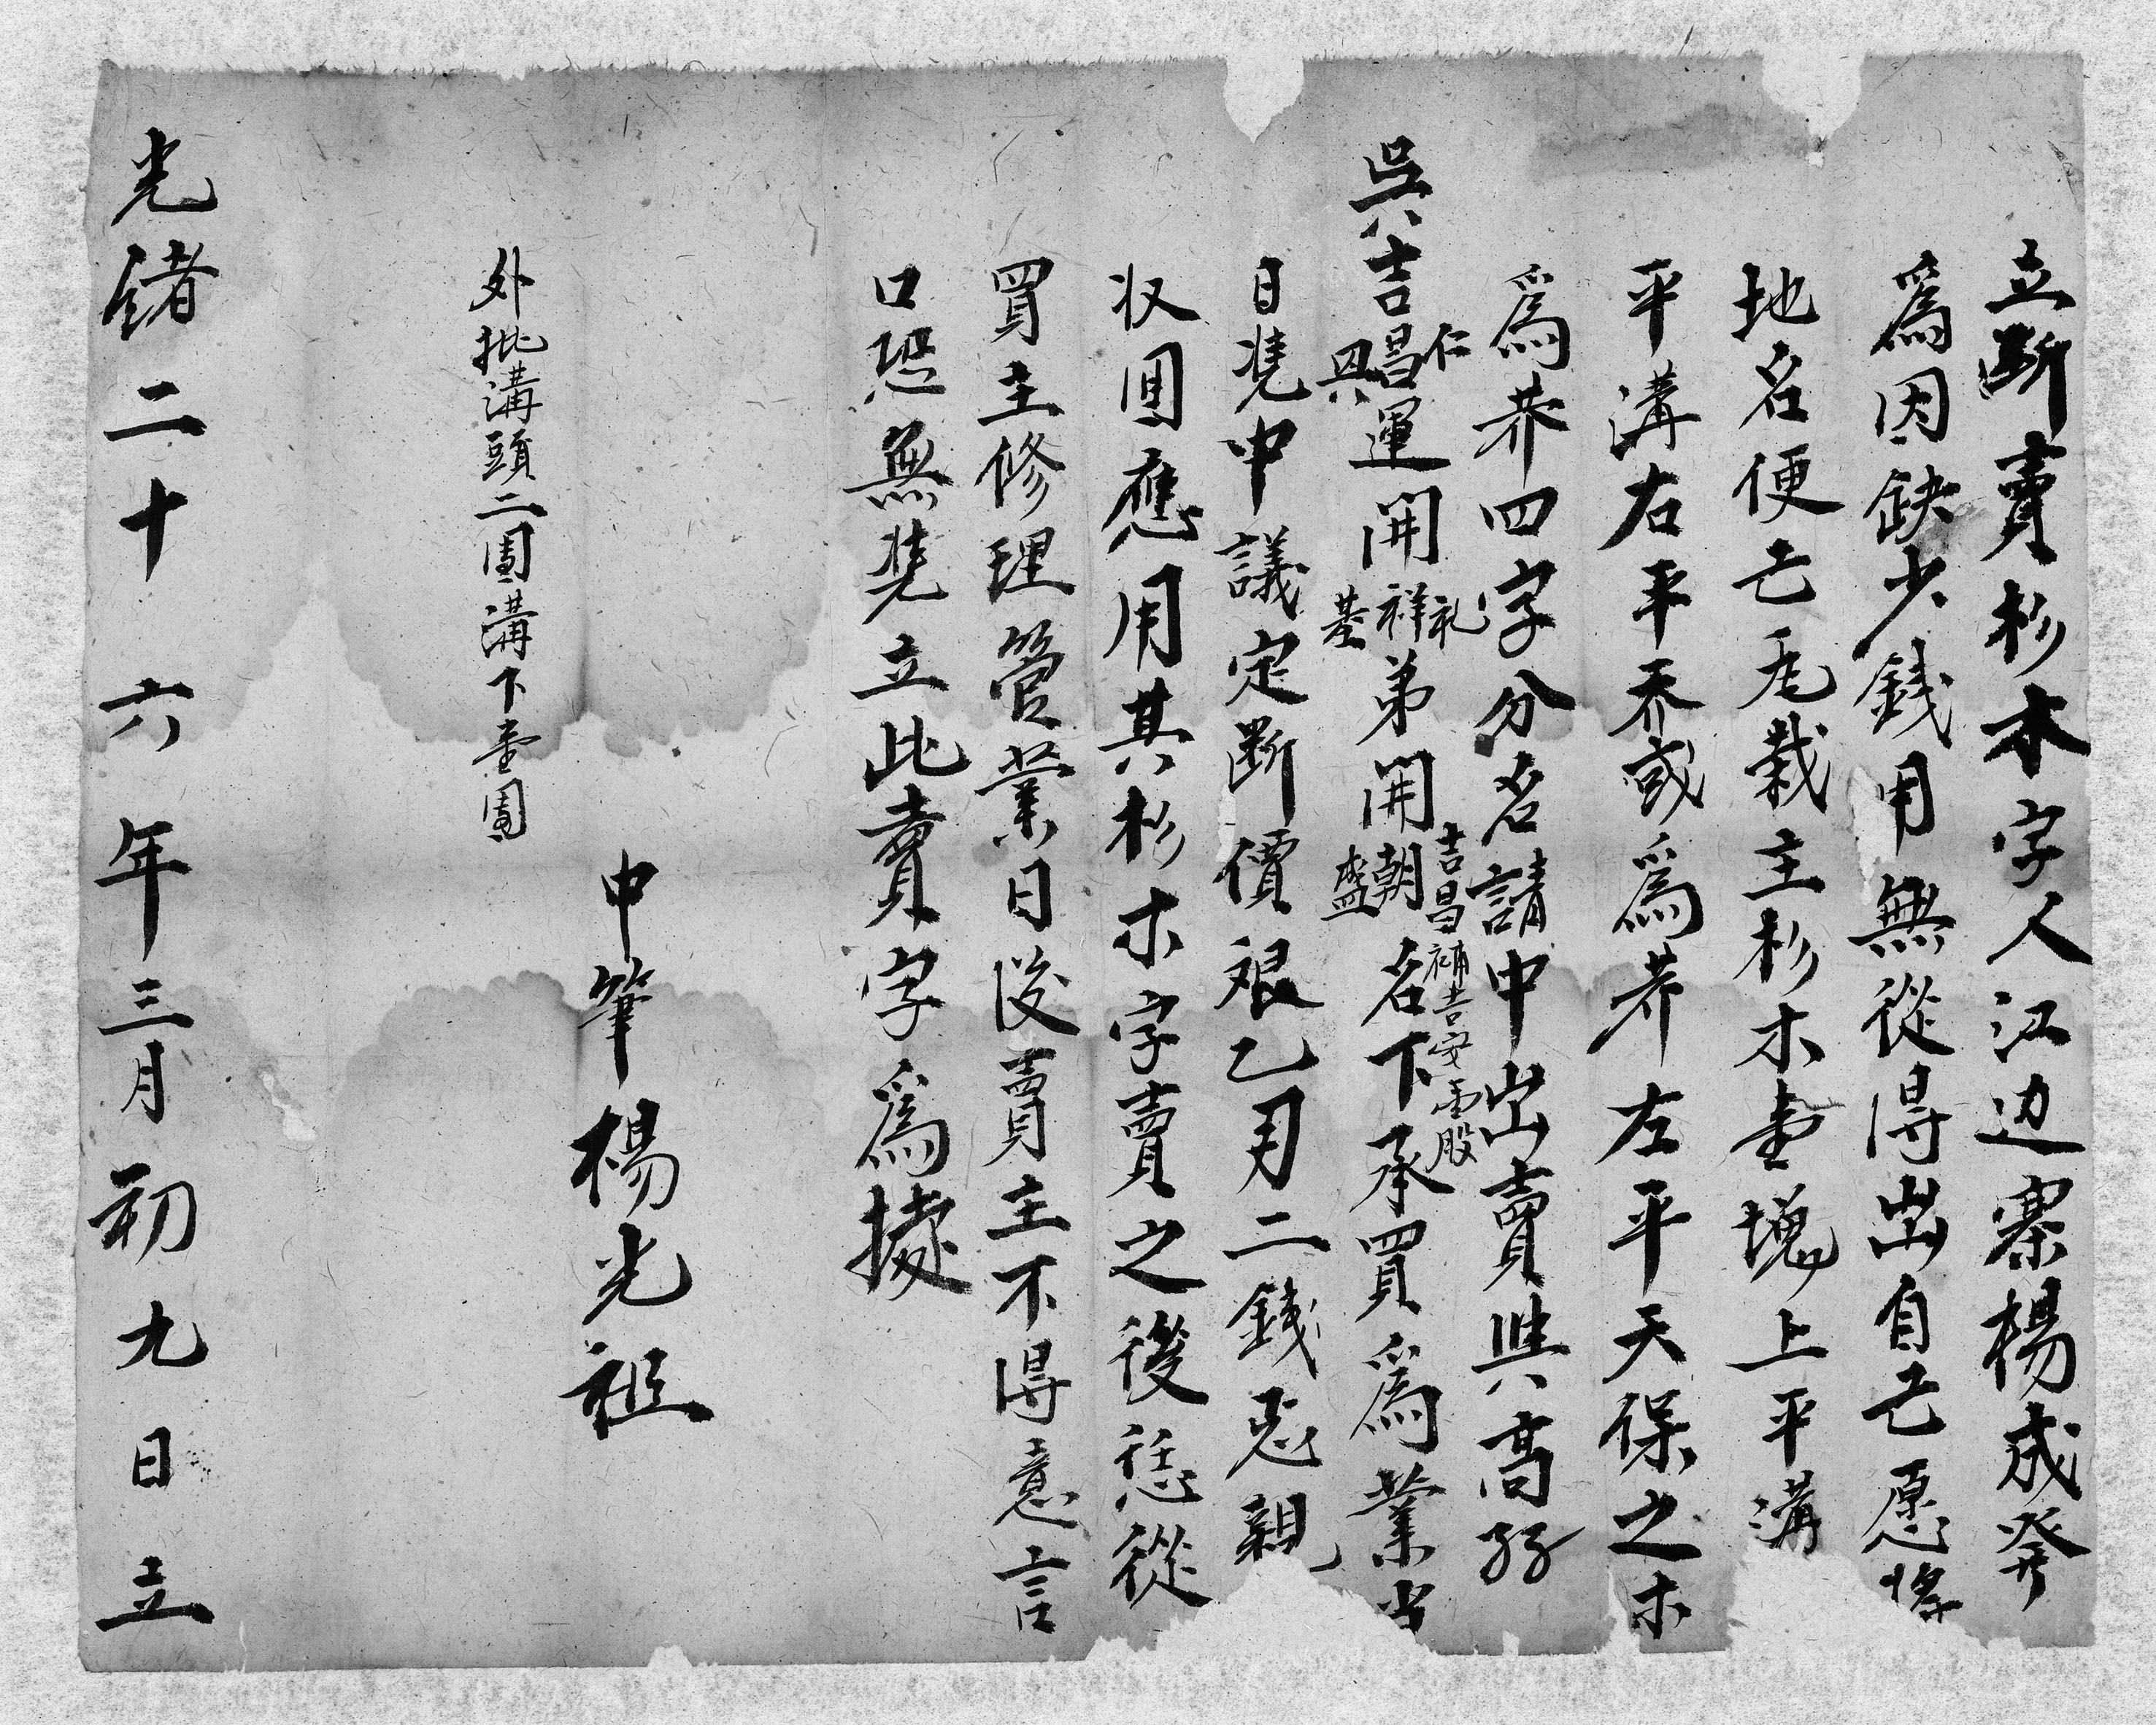 立断賣杉木字人江边寨楊成發
爲因缺少錢用無從得出自己愿將
地名便己毛栽主杉木壹塊上平溝
平溝右平乔或爲界左平天保之木
爲界四字分名請中出賣與高孖
吳吉昌仁興運開祥礼基弟開朝盛吉昌補吉安壹股名下承買爲業当
日凴中議定断價艰乙月二錢思親
収囬應用其杉木字賣之後恁從
買主修理管業日後賣主不得意言
口恐無凴立此賣字爲據
中筆楊光祖
外批溝頭二團溝下壹團
光緒二十六年三月初九日立